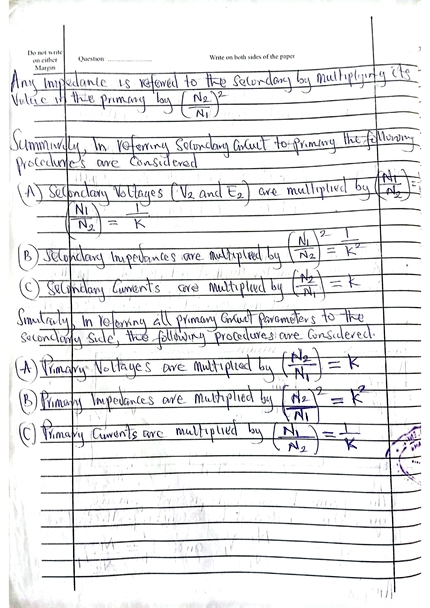 Do not write
on either
Margin
Question
Write on both sides of the paper
Any Impedance is referred to the Secondary by multiplying its
Value in the primary by (N2/N1)²
Summarily, In referring Secondary Circuit to primary the following
procedures are Considered
(A) Secondary Voltages (V2 and E2) are multiplied by (N1/N2) =
(N1/N2) = 1/K
(B) Secondary Impedances are multiplied by (N1/N2)² = 1/K²
(C) Secondary Currents are multiplied by (N2/N1) = K
Similarly, In referring all primary Circuit Parameters to the
secondary side, the following procedures are Considered.
(A) Primary Voltages are multiplied by (N2/N1) = K
(B) Primary Impedances are multiplied by (N2/N1)² = K²
(C) Primary Currents are multiplied by (N1/N2) = 1/K